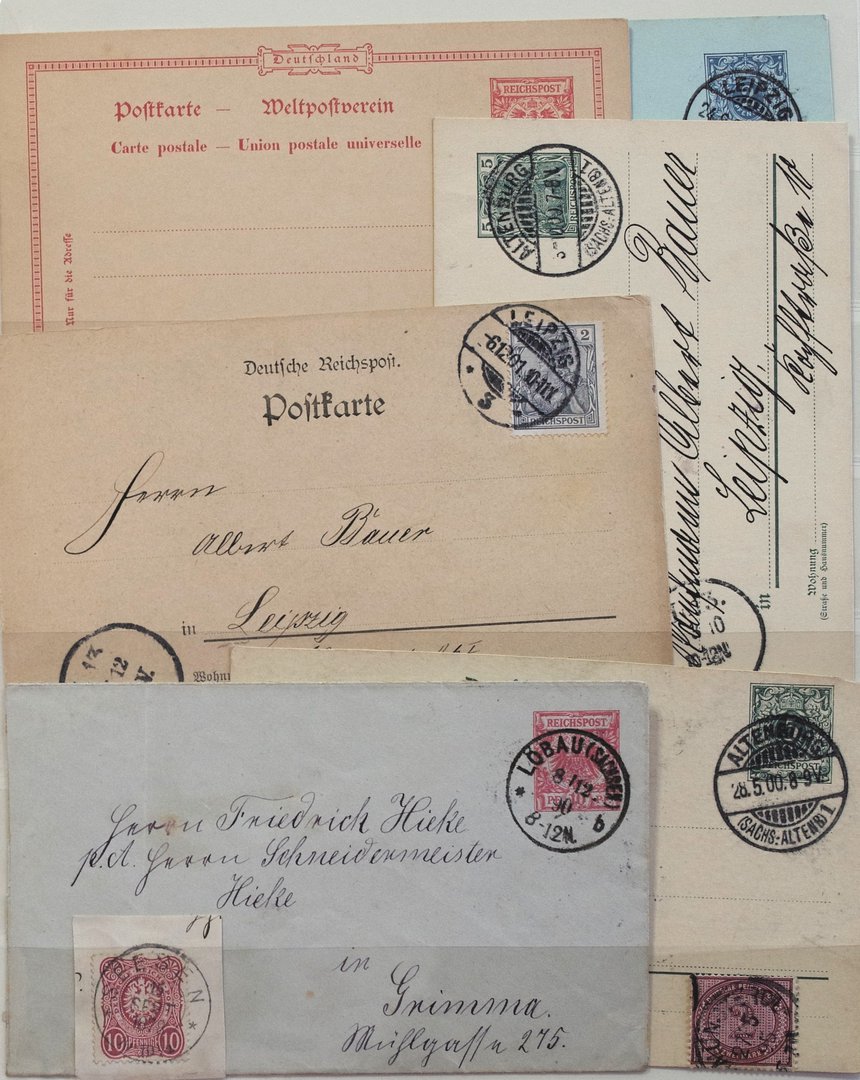 Deutschland
REICHSPOST
Postkarte — Weltpostverein
Carte postale — Union postale universelle
Nur für die Adresse
LEIPZIG
5 5
REICHSPOST
ALTENBURG
7-8 V
(SACHS-ALTENB) 1
Albert Bauer
Leipzig,
in
Wohnung
(Straße und Hausnummer)
10
8-12N
Deutsche Reichspost.
Postkarte
2
REICHSPOST
LEIPZIG
-6.12.01.10-11V.
* 3 *
Herrn
Albert Bauer
in Leipzig
12
V.
REICHSPOST
LÖBAU (SACHSEN)
90
8-12N.
* b
Herrn Friedrich Hieke
p. A. Herrn Schneidermeister
Hieke
in
Grimma.
Mühlgasse 275.
10 PFENNIG 10
REICHSPOST
ALTENBURG
28.5.00.8-9V.
(SACHS.-ALTENB) 1